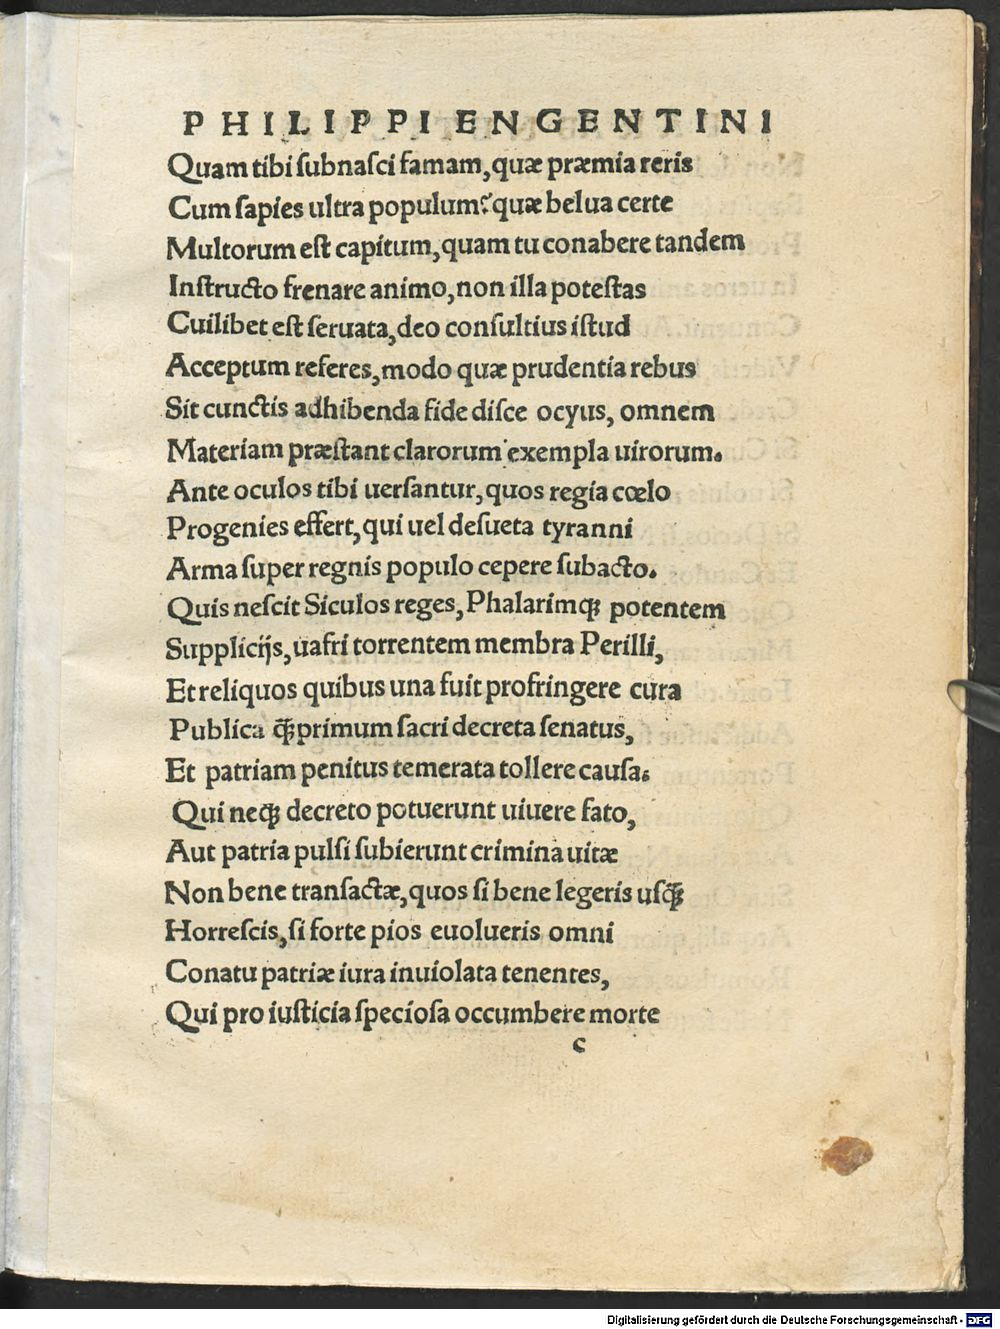 PHILIPPI ENGENTINI
Quam tibi ſubnaſci famam, quæ præmia reris
Cum ſapies ultra populum? quæ belua certe
Multorum eſt capitum, quam tu conabere tandem
Inſtructo frenare animo, non illa poteſtas
Cuilibet eſt ſeruata, deo conſultius iſtud
Acceptum referes, modo quæ prudentia rebus
Sit cunctis adhibenda fide diſce ocyus, omnem
Materiam præſtant clarorum exempla uirorum.
Ante oculos tibi uerſantur, quos regia cœlo
Progenies effert, qui uel deſueta tyranni
Arma ſuper regnis populo cepere ſubacto.
Quis neſcit Siculos reges, Phalarimqꝫ potentem
Supplicijs, uafri torrentem membra Perilli,
Et reliquos quibus una fuit profringere cura
Publica q̃ꝫ primum ſacri decreta ſenatus,
Et patriam penitus temerata tollere cauſa.
Qui neqꝫ decreto potuerunt uiuere fato,
Aut patria pulſi ſubierunt crimina uitæ
Non bene tranſactæ, quos ſi bene legeris uſq̃ꝫ
Horreſcis, ſi forte pios euolueris omni
Conatu patriæ iura inuiolata tenentes,
Qui pro iuſticia ſpecioſa occumbere morte
c
Digitalisierung gefördert durch die Deutsche Forschungsgemeinschaft - DFG